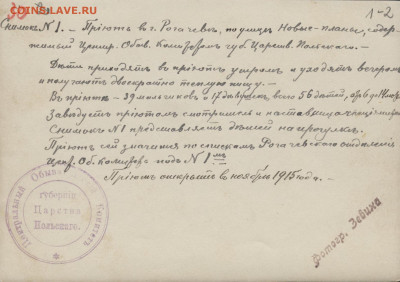 COINSS.RU
1-2
Снимок № 1. — Пріютъ в г. Рогачевѣ, по улицѣ Новые-планы, содер-
жимый Центр. Обыв. Комитетомъ губ. Царства Польскаго.
Дѣти приходятъ въ пріютъ утромъ и уходятъ вечеромъ
и получаютъ двукратно теплую пищу.
Въ пріютѣ — 39 мальчиковъ и 17 дѣвушекъ, всего 56 дѣтей,
Завѣдуетъ пріютомъ
Снимокъ № 1 представляетъ дѣтей на прогулкѣ.
Пріютъ сей значится по спискамъ Рогачевского отдѣленія
Центр. Об. Комитета подъ № 1
Пріютъ открытъ в ноябрѣ 1915 года. —
Центральный Обывательскій Комитетъ
губерній
Царства
Польскаго.
Фотогр. Зевина